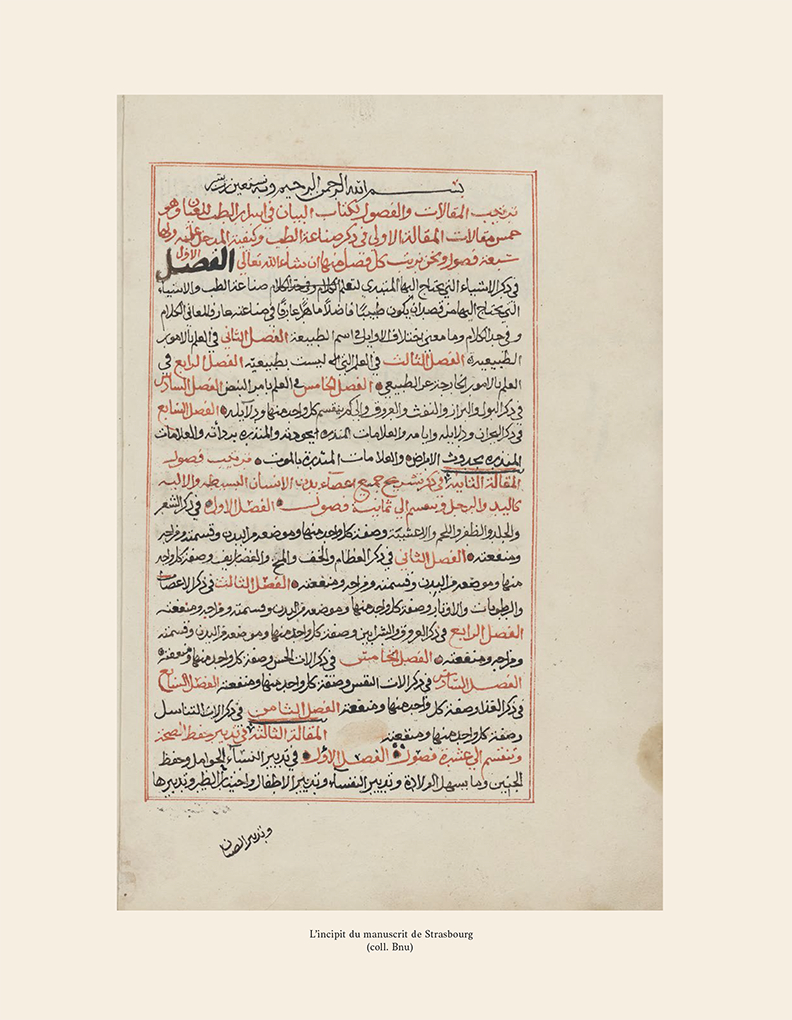 بسم الله الرحمن الرحيم وبه نستعين
ترتيب المقالات والفصول لكتاب البيان في اسرار الطب للعيان وهو
خمس مقالات المقالة الاولى في ذكر صناعة الطب وكيفية المدخل عليه ولها
سبعة فصول ونحن نرتب كل فصل منها ان شاء الله تعالى الفصل الاول
في ذكر الاشياء التي يحتاج اليها المبتدي لتعلم الكلام وحد الكلام صناعة الطب والاشياء
التي يحتاج اليها من قصد ان يكون طبيبًا فاضلًا ماهرًا عارفًا في صناعته عارف المعاني الكلام
و في حد الكلام وما معنى اختلاف الاوايل في اسم الطبيعة الفصل الثاني في العلم بالامور
الطبيعية الفصل الثالث في العلم التي ليست بطبيعيه الفصل الرابع في
العلم بالامور الخارجة عن الطبيعي الفصل الخامس في العلم بامر النبض الفصل السادس
في ذكر البول والبراز والنفث والعروق والى كم ينقسم كل واحد منها ودلايله الفصل السابع
في ذكر البحران ودلايله وايامه والعلامات المنذره بجودته والمنذره برداته والعلامات
المنذره بحدوث الامراض والعلامات المنذرة بالموت ترتيب فصول
المقالة الثانية في ذكر تشريح جميع اعضاء بدن الانسان البسيطه والاليه
كاليد والرجل وتنقسم الى ثمانية فصول الفصل الاول في ذكر الشعر
والجلد والظفر واللحم والاغشية وصفة كل واحد منها وموضعه من البدن وقسمته ومزاجه
ومنفعته الفصل الثاني في ذكر العظام والمخ والغضاريف وصفة كل واحد
منها وموضعه من البدن وقسمته ومزاجه ومنفعته الفصل الثالث في ذكر الاعصاب
والرطوبات والاوتار وصفة كل واحد منها وموضعه من البدن وقسمته ومزاجه ومنفعته
الفصل الرابع في ذكر العروق والشرايين وصفة كل واحد منها وموضعه من البدن وقسمته
ومزاجه ومنفعته الفصل الخامس في ذكر الات الحس وصفة كل واحد منها ومنفعته
الفصل السادس في ذكر الات النفس وصفة كل واحد منها ومنفعته الفصل السابع
في ذكر الغذا وصفة كل واحد منها ومنفعته الفصل الثامن في ذكر الات التناسل
وصفة كل واحد منها ومنفعته المقالة الثالثة في تدبير حفظ الصحة
وتنقسم الى عشرة فصول الفصل الاول في تدبير النساء الحوامل وحفظ
الجنين وما يسهل الولادة وتدبير النفساء وتدبير الاطفال واختيار الظئر وتدبيرها
وتدبير الصبيان
L'incipit du manuscrit de Strasbourg
(coll. Bnu)